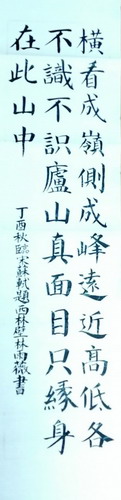 橫看成嶺側成峰遠近高低各
不識不识廬山真面目只緣身
在此山中
丁酉秋臨宋蘇軾題西林壁林雨薇書